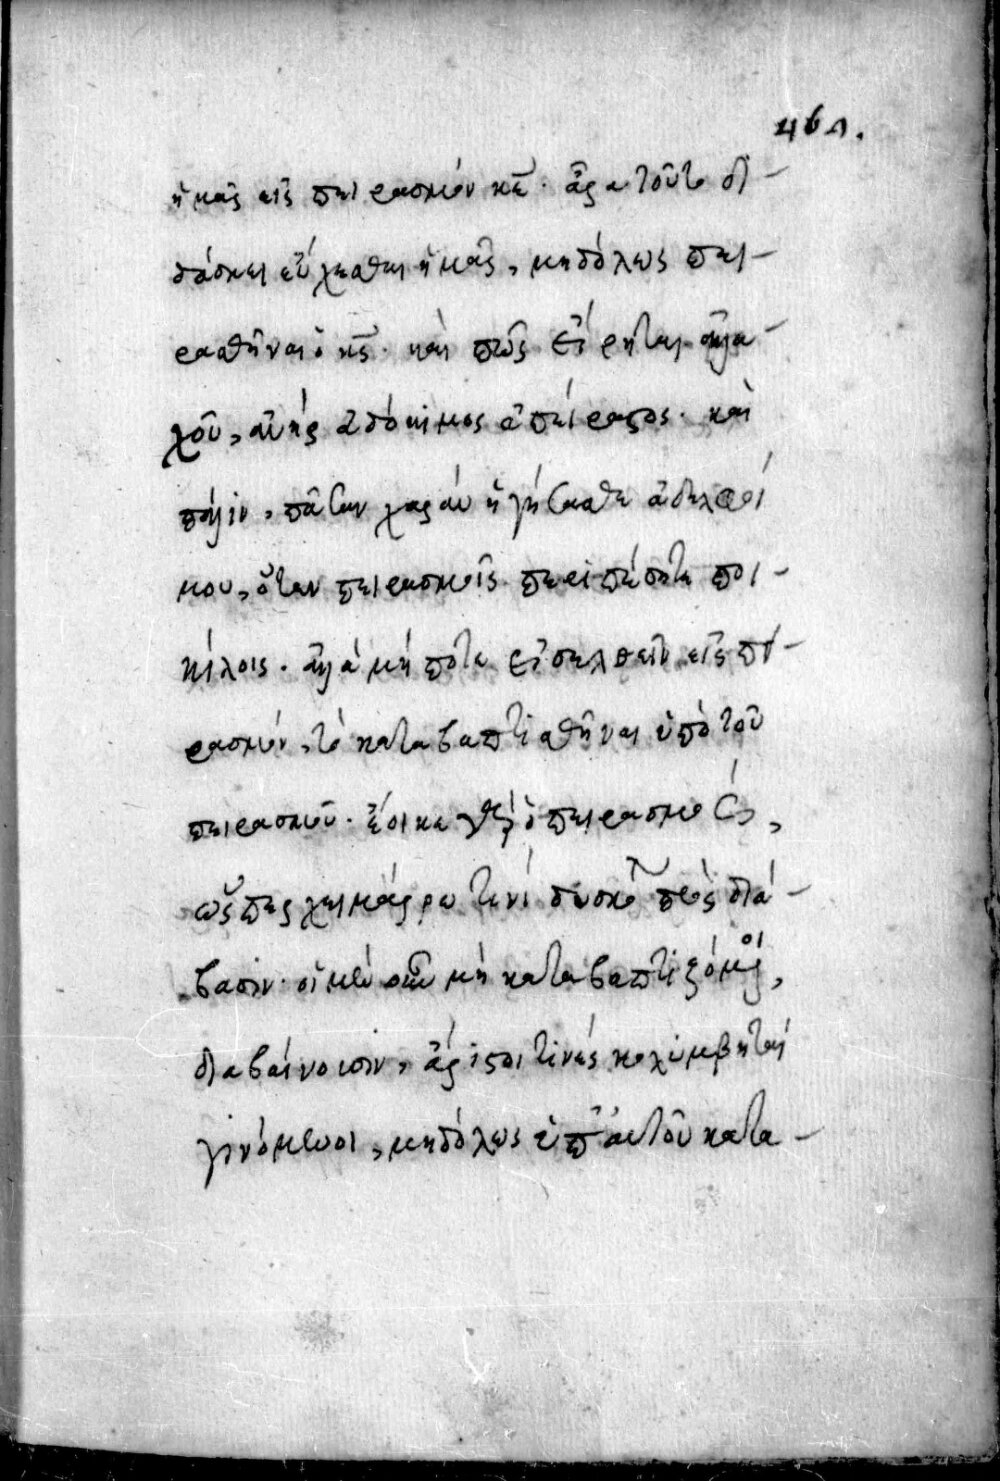 461.
ἡμᾶς εἰς πειρασμόν κε̅. ἆρα τοῦτο δι-
δάσκει εὔχεσθαι ἡμᾶς, μηδόλως πει-
ρασθῆναι ὁ κς̅. καὶ πῶς εἴρηται ἀλλα-
χοῦ, ἀνὴρ ἀδόκιμος ἀπείραστος. καὶ
πάλιν, πᾶσαν χαρὰν ἡγήσασθε ἀδελφοί
μου, ὅταν πειρασμοῖς περιπέσητε ποι-
κίλοις. ἀλλὰ μή ποτε εἰσελθεῖν εἰς πει-
ρασμόν, τὸ καταβαπτισθῆναι ὑπὸ τοῦ
πειρασμοῦ. ἔοικε γὰρ ὁ πειρασμός,
ὥσπερ χειμάρρῳ τινί δυσκό πρὸς διά-
βασιν. οἱ μὲν οὖν μὴ καταβαπτιζόμενοι,
διαβαίνουσιν, ἄριστοι τινές κολυμβηταί
γινόμενοι, μηδόλως ὑπ' αυτοῦ κατα-